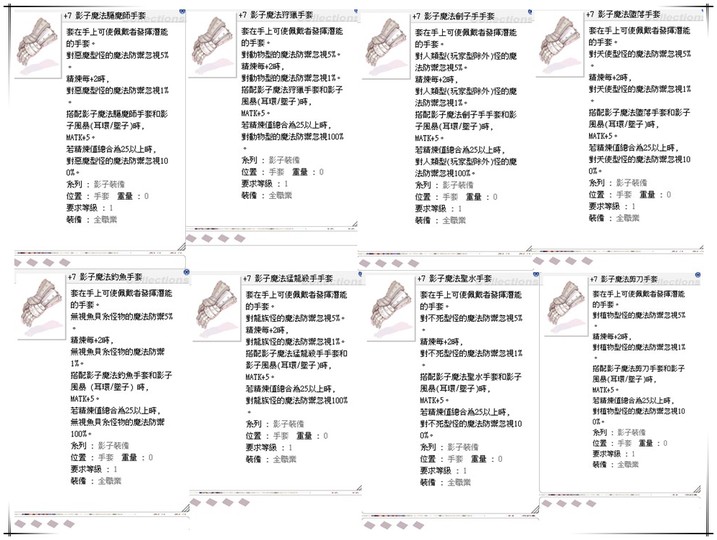 +7 影子魔法驅魔師手套
套在手上可使佩戴者發揮潛能
的手套。
對惡魔型怪的魔法防禦忽視5%
。
精煉每+2時,
對惡魔型怪的魔法防禦忽視1%
。
搭配影子魔法驅魔師手套和影
子風暴(耳環/墜子)時,
MATK+5。
若精煉值總合為25以上時,
對惡魔型怪的魔法防禦忽視10
0%。
系列 : 影子裝備
位置 : 手套 重量 : 0
要求等級 : 1
裝備 : 全職業
+7 影子魔法狩獵手套
套在手上可使佩戴者發揮潛能
的手套。
對動物型的魔法防禦忽視5%。
精煉每+2時,
對動物型的魔法防禦忽視1%。
搭配影子魔法狩獵手套和影子
風暴(耳環/墜子)時,
MATK+5。
若精煉值總合為25以上時,
對動物型的魔法防禦忽視100%
。
系列 : 影子裝備
位置 : 手套 重量 : 0
要求等級 : 1
裝備 : 全職業
+7 影子魔法劊子手手套
套在手上可使佩戴者發揮潛能
的手套。
對人類型(玩家型除外)怪的魔
法防禦忽視5%。
精煉每+2時,
對人類型(玩家型除外)怪的魔
法防禦忽視1%。
搭配影子魔法劊子手手套和影
子風暴(耳環/墜子)時,
MATK+5。
若精煉值總合為25以上時,
對人類型(玩家型除外)怪的魔
法防禦忽視100%。
系列 : 影子裝備
位置 : 手套 重量 : 0
要求等級 : 1
裝備 : 全職業
+7 影子魔法墮落手套
套在手上可使佩戴者發揮潛能
的手套。
對天使型怪的魔法防禦忽視5%
。
精煉每+2時,
對天使型怪的魔法防禦忽視1%
。
搭配影子魔法墮落手套和影子
風暴(耳環/墜子)時,
MATK+5。
若精煉值總合為25以上時,
對天使型怪的魔法防禦忽視10
0%。
系列 : 影子裝備
位置 : 手套 重量 : 0
要求等級 : 1
裝備 : 全職業
+7 影子魔法釣魚手套
套在手上可使佩戴者發揮潛能
的手套。
無視魚貝系怪物的魔法防禦5%
。
精煉每+2時,
無視魚貝系怪物的魔法防禦
1%。
搭配影子魔法釣魚手套和影子
風暴 (耳環/墜子) 時,
MATK+5。
若精煉值總合為25以上時,
無視魚貝系怪物的魔法防禦
100%。
系列 : 影子裝備
位置 : 手套 重量 : 0
要求等級 : 1
裝備 : 全職業
+7 影子魔法猛龍殺手手套
套在手上可使佩戴者發揮潛能
的手套。
對龍族怪的魔法防禦忽視5%。
精煉每+2時,
對龍族怪的魔法防禦忽視1%。
搭配影子魔法猛龍殺手手套和
影子風暴(耳環/墜子)時,
MATK+5。
若精煉值總合為25以上時,
對龍族怪的魔法防禦忽視100%
。
系列 : 影子裝備
位置 : 手套 重量 : 0
要求等級 : 1
裝備 : 全職業
+7 影子魔法聖水手套
套在手上可使佩戴者發揮潛能
的手套。
對不死型怪的魔法防禦忽視5%
。
精煉每+2時,
對不死型怪的魔法防禦忽視1%
。
搭配影子魔法聖水手套和影子
風暴(耳環/墜子)時,
MATK+5。
若精煉值總合為25以上時,
對不死型怪的魔法防禦忽視10
0%。
系列 : 影子裝備
位置 : 手套 重量 : 0
要求等級 : 1
裝備 : 全職業
+7 影子魔法剪刀手套
套在手上可使佩戴者發揮潛能
的手套。
對植物型怪的魔法防禦忽視5%
。
精煉每+2時,
對植物型怪的魔法防禦忽視1%
。
搭配影子魔法剪刀手套和影子
風暴(耳環/墜子)時,
MATK+5。
若精煉值總合為25以上時,
對植物型怪的魔法防禦忽視10
0%。
系列 : 影子裝備
位置 : 手套 重量 : 0
要求等級 : 1
裝備 : 全職業